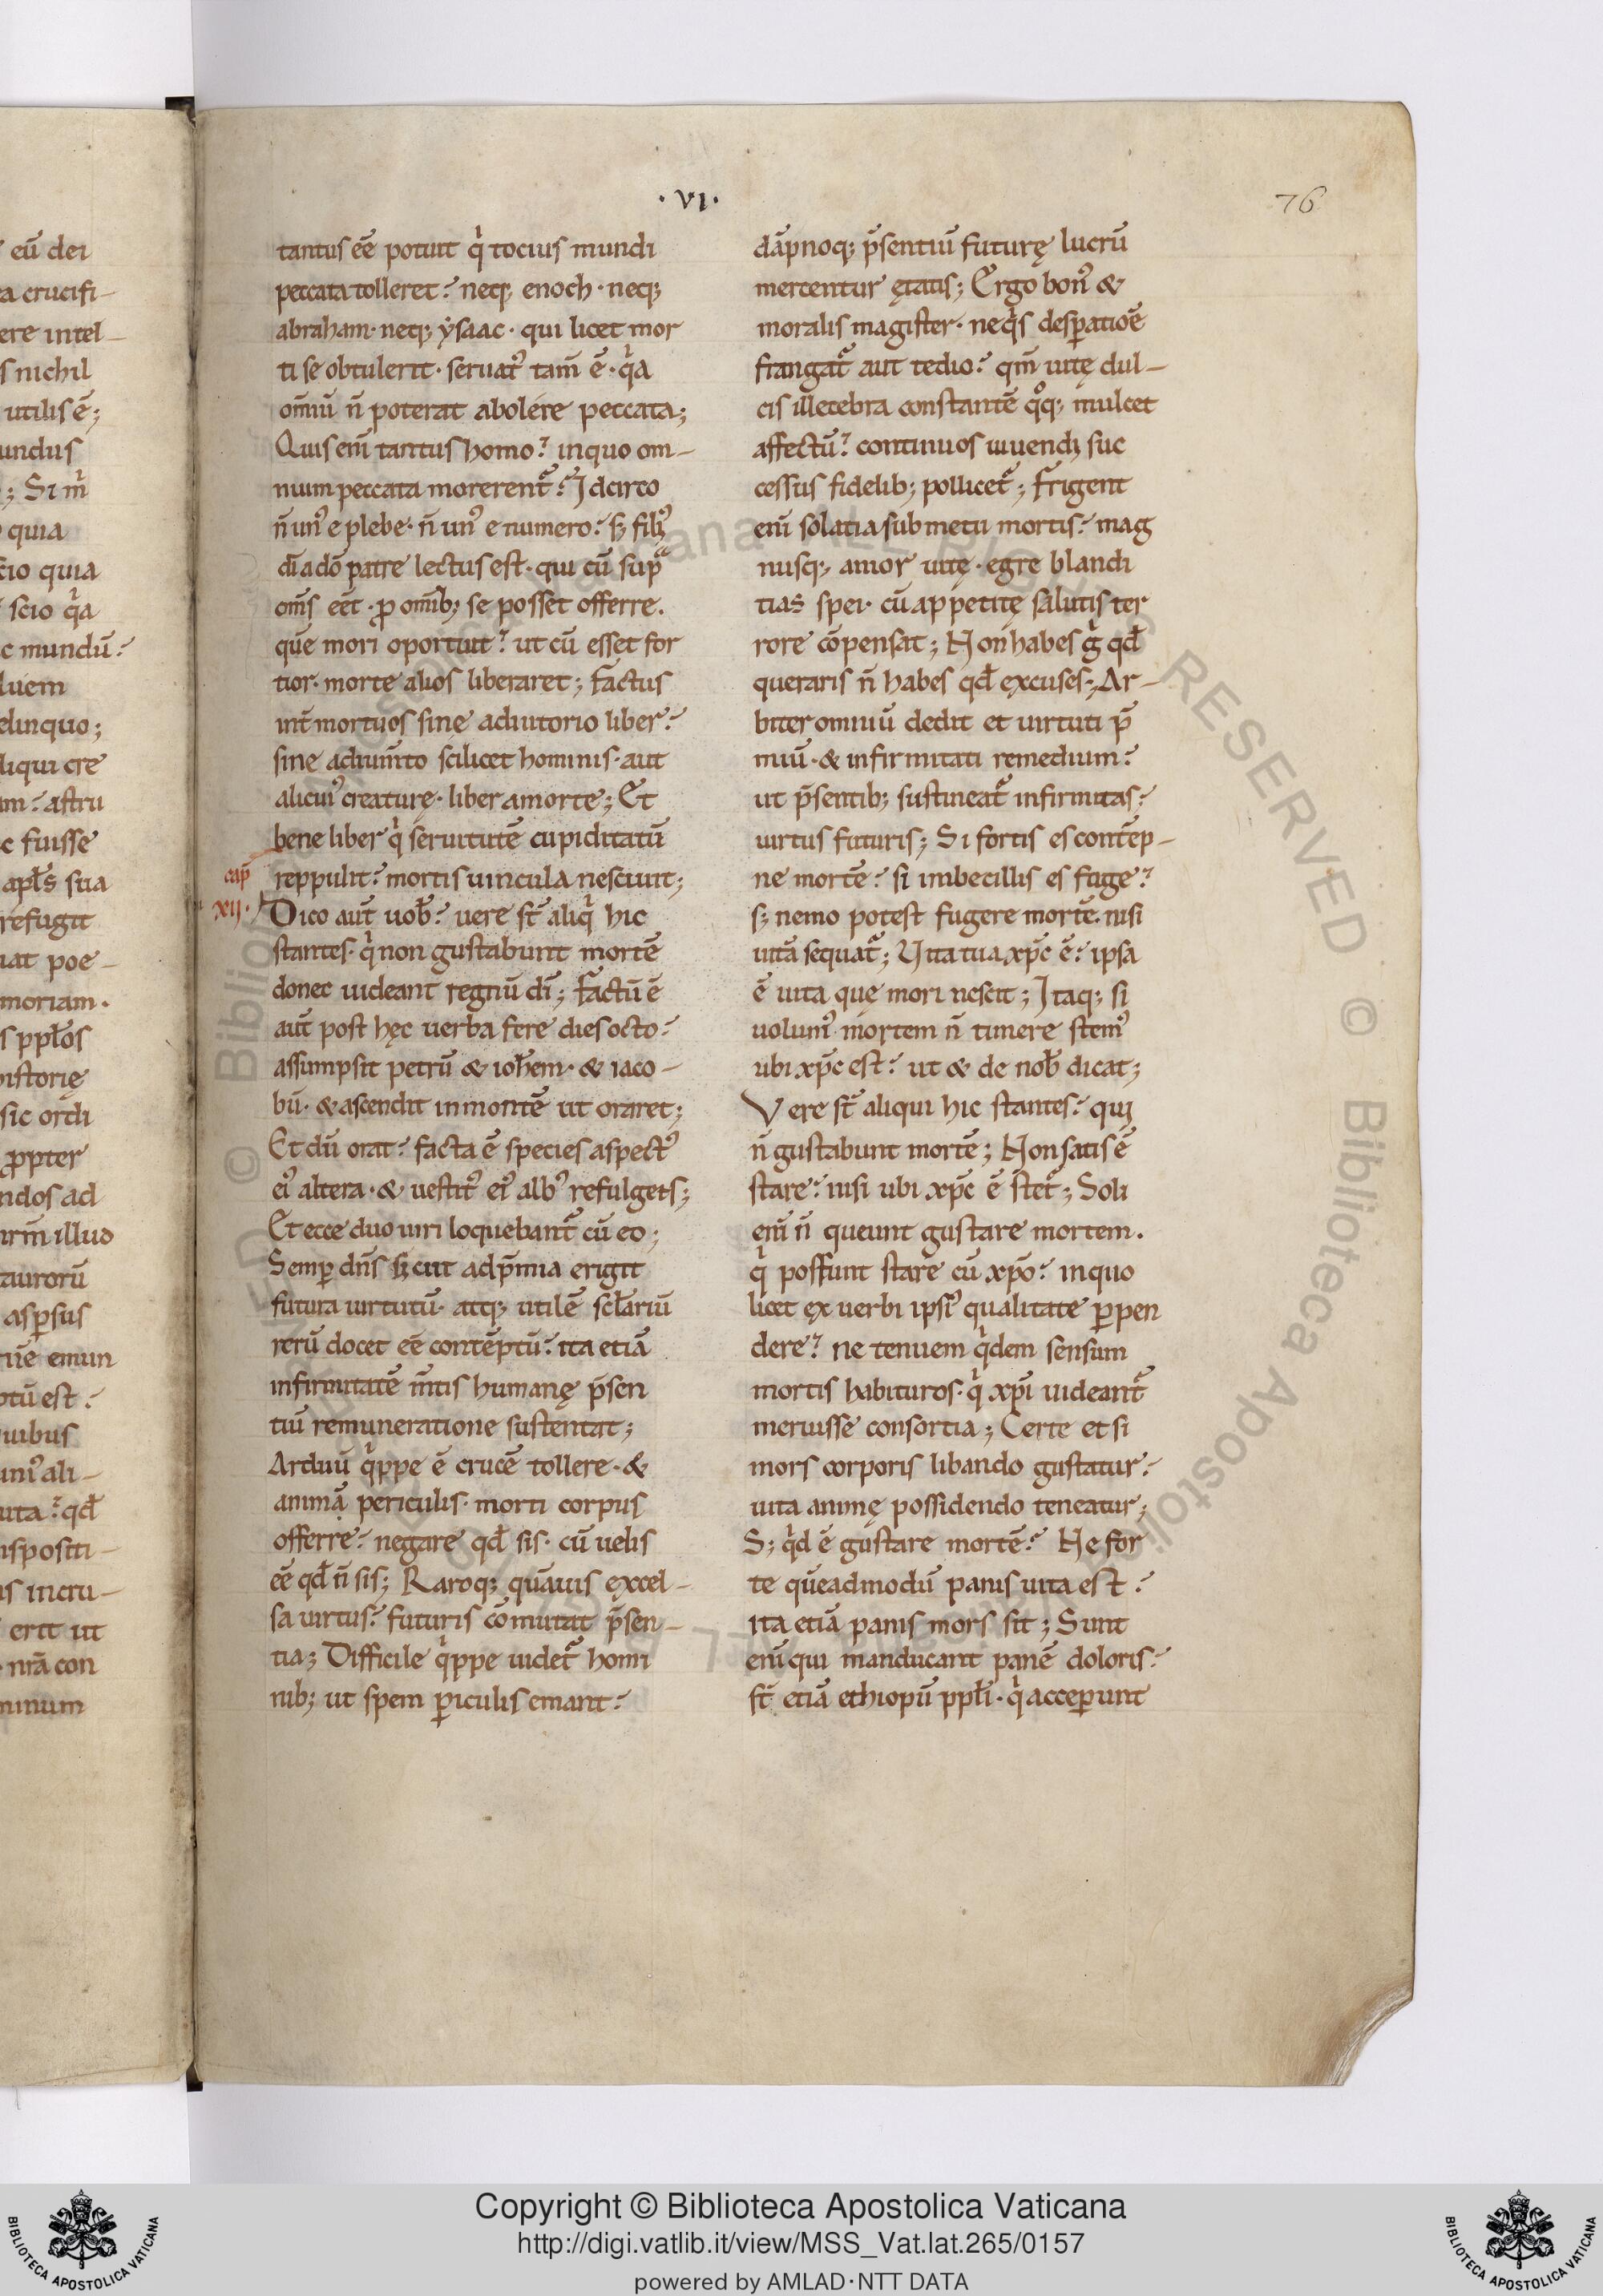 eū dei
ra crucifi-
ere intel-
s nichil
utilis ē;
undus
; Si m̄
quia
cio quia
scio qͥa
c mundū?
luem
elinquo;
liqui cre
am? astru
c fuisse
apl̄s sua
refugit
uat poe-
moriam.
s ppl̄os
istorię
sic ordi
ꝓpter
ndos ad
urm̄ illuo
taurorū
aspersus
emun
ptū est?
uibus
uniꝰ ali-
uita? qđ
isposīti-
is incru-
erit ut
nr̄a con
minum
· VI ·
76
tantus eē potuit qͥ tocius mundi
peccata tolleret? neq; enoch · neq;
abraham · neq; ẏsaac · qui licet mor
ti se obtulerit · seruatꝰ tam̄ ē · qͥa
om̄iū n̄ poterat abolere peccata;
Quis em̄ tantus homo? inquo om-
nium peccata morerent᷑? Idcirco
n̄ unꝰ e plebe · n̄ unꝰ e numero? s; filiꝰ
dī adō patre lectus est · qui cū supᷓ
om̄s eēt · ꝓ om̄ib; se posset offerre.
quē mori oportuit? ut cū esset for
tior · morte alios liberaret; factus
int̄ mortuos sine adiutorio liber?
sine adium̄to scilicet hominis · aut
alicuiꝰ creaturę · liber amorte; Et
bene liber qͥ seruitutē cupiditatū
cap̄
reppulit? mortis uincula nesciuit;
xij.
Dico aut̄ uob̄? uere st̄ aliqͥ hic
stantes · qͥ non gustabunt mortē
donec uideant regnū dī; factū ē
aut̄ post hęc uerba fere dies octo?
assumpsit petrū & ioh̄em · & iaco-
bū · & ascendit inmontē ut oraret;
Et dū orat? facta ē species aspectꝰ
eiꝰ altera · & uestitꝰ eiꝰ albꝰ refulgens;
Et ecce duo uiri loquebant᷑ cū eo;
Semꝑ dn̄s sicut adp̄mia erigit
futura uirtutū · atq; utilē scl̄ariū
rerū docet eē contēptū? ita etiā
infirmitatē m̄tis humanę p̄sen
tiū remuneratione sustentat;
Arduū qͥppe ē crucē tollere · &
animā periculis · morti corpus
offerre? negare qđ sis · cū uelis
eē qđ n̄ sis; Raroq; quāuis excel-
sa uirtus? futuris cōmutat p̄sen-
tia; Difficile qͥppe uidet᷑ homi
nib; ut spem ꝑiculis emant?
dāpnoq; p̄sentiū futurę lucrū
mercentur ętatis; Ergo bonꝰ &
moralis magister · neqͥs desꝑatioē
frangat᷑ aut tedio? qm̄ uitę dul-
cis illecebra constantē qͦq; mulcet
affectū? continuos uiuendi suc
cessus fidelib; pollicet᷑; Frigent
eni solatia sub metu mortis? mag
nusq; amor uitę · egre blandi
tias spei · cū appetitę salutis ter
rore cōpensat; Non habes gͥ qđ
queraris n̄ habes qđ excuses; Ar-
biter omniū dedit et uirtuti p̄
miū · & infirmitati remedium?
ut p̄sentib; sustineat᷑ infirmitas?
uirtus futuris; Si fortis es contēp-
ne mortē? si imbecillis es fuge?
s; nemo potest fugere mortē. nisi
uitā sequat᷑; Vita tua xp̄c ē? ipsa
ē uita quę mori nescit; Itaq; si
uolumꝰ mortem n̄ timere stemꝰ
ubi xp̄c est? ut & de nob̄ dicat;
Vere st̄ aliqui hic stantes? qui
n̄ gustabunt mortē; Non satis ē
stare? nisi ubi xp̄c ē stet᷑; Soli
em̄ n̄ queunt gustare mortem.
qͥ possunt stare cū xp̄o? inquo
licet ex uerbi ipsiꝰ qualitate ꝑpen
dere? ne tenuem qͥdem sensum
mortis habituros · qͥ xp̄i uideant᷑
meruisse consortia; Certe et si
mors corporis libando gustatur?
uita animę possidendo teneatur;
S; qͥd ē gustare mortē? Ne for
te quēadmodū panis uita est?
ita etiā panis mors sit; Sunt
eni qui manducant panē doloris?
st̄ etiā ethiopū ppl̄i · qͥ acceꝑunt
© Biblioteca Apostolica Vaticana ALL RIGHTS RESERVED
Copyright © Biblioteca Apostolica Vaticana
http://digi.vatlib.it/view/MSS_Vat.lat.265/0157
powered by AMLAD·NTT DATA
BIBLIOTECA APOSTOLICA VATICANA
BIBLIOTECA APOSTOLICA VATICANA